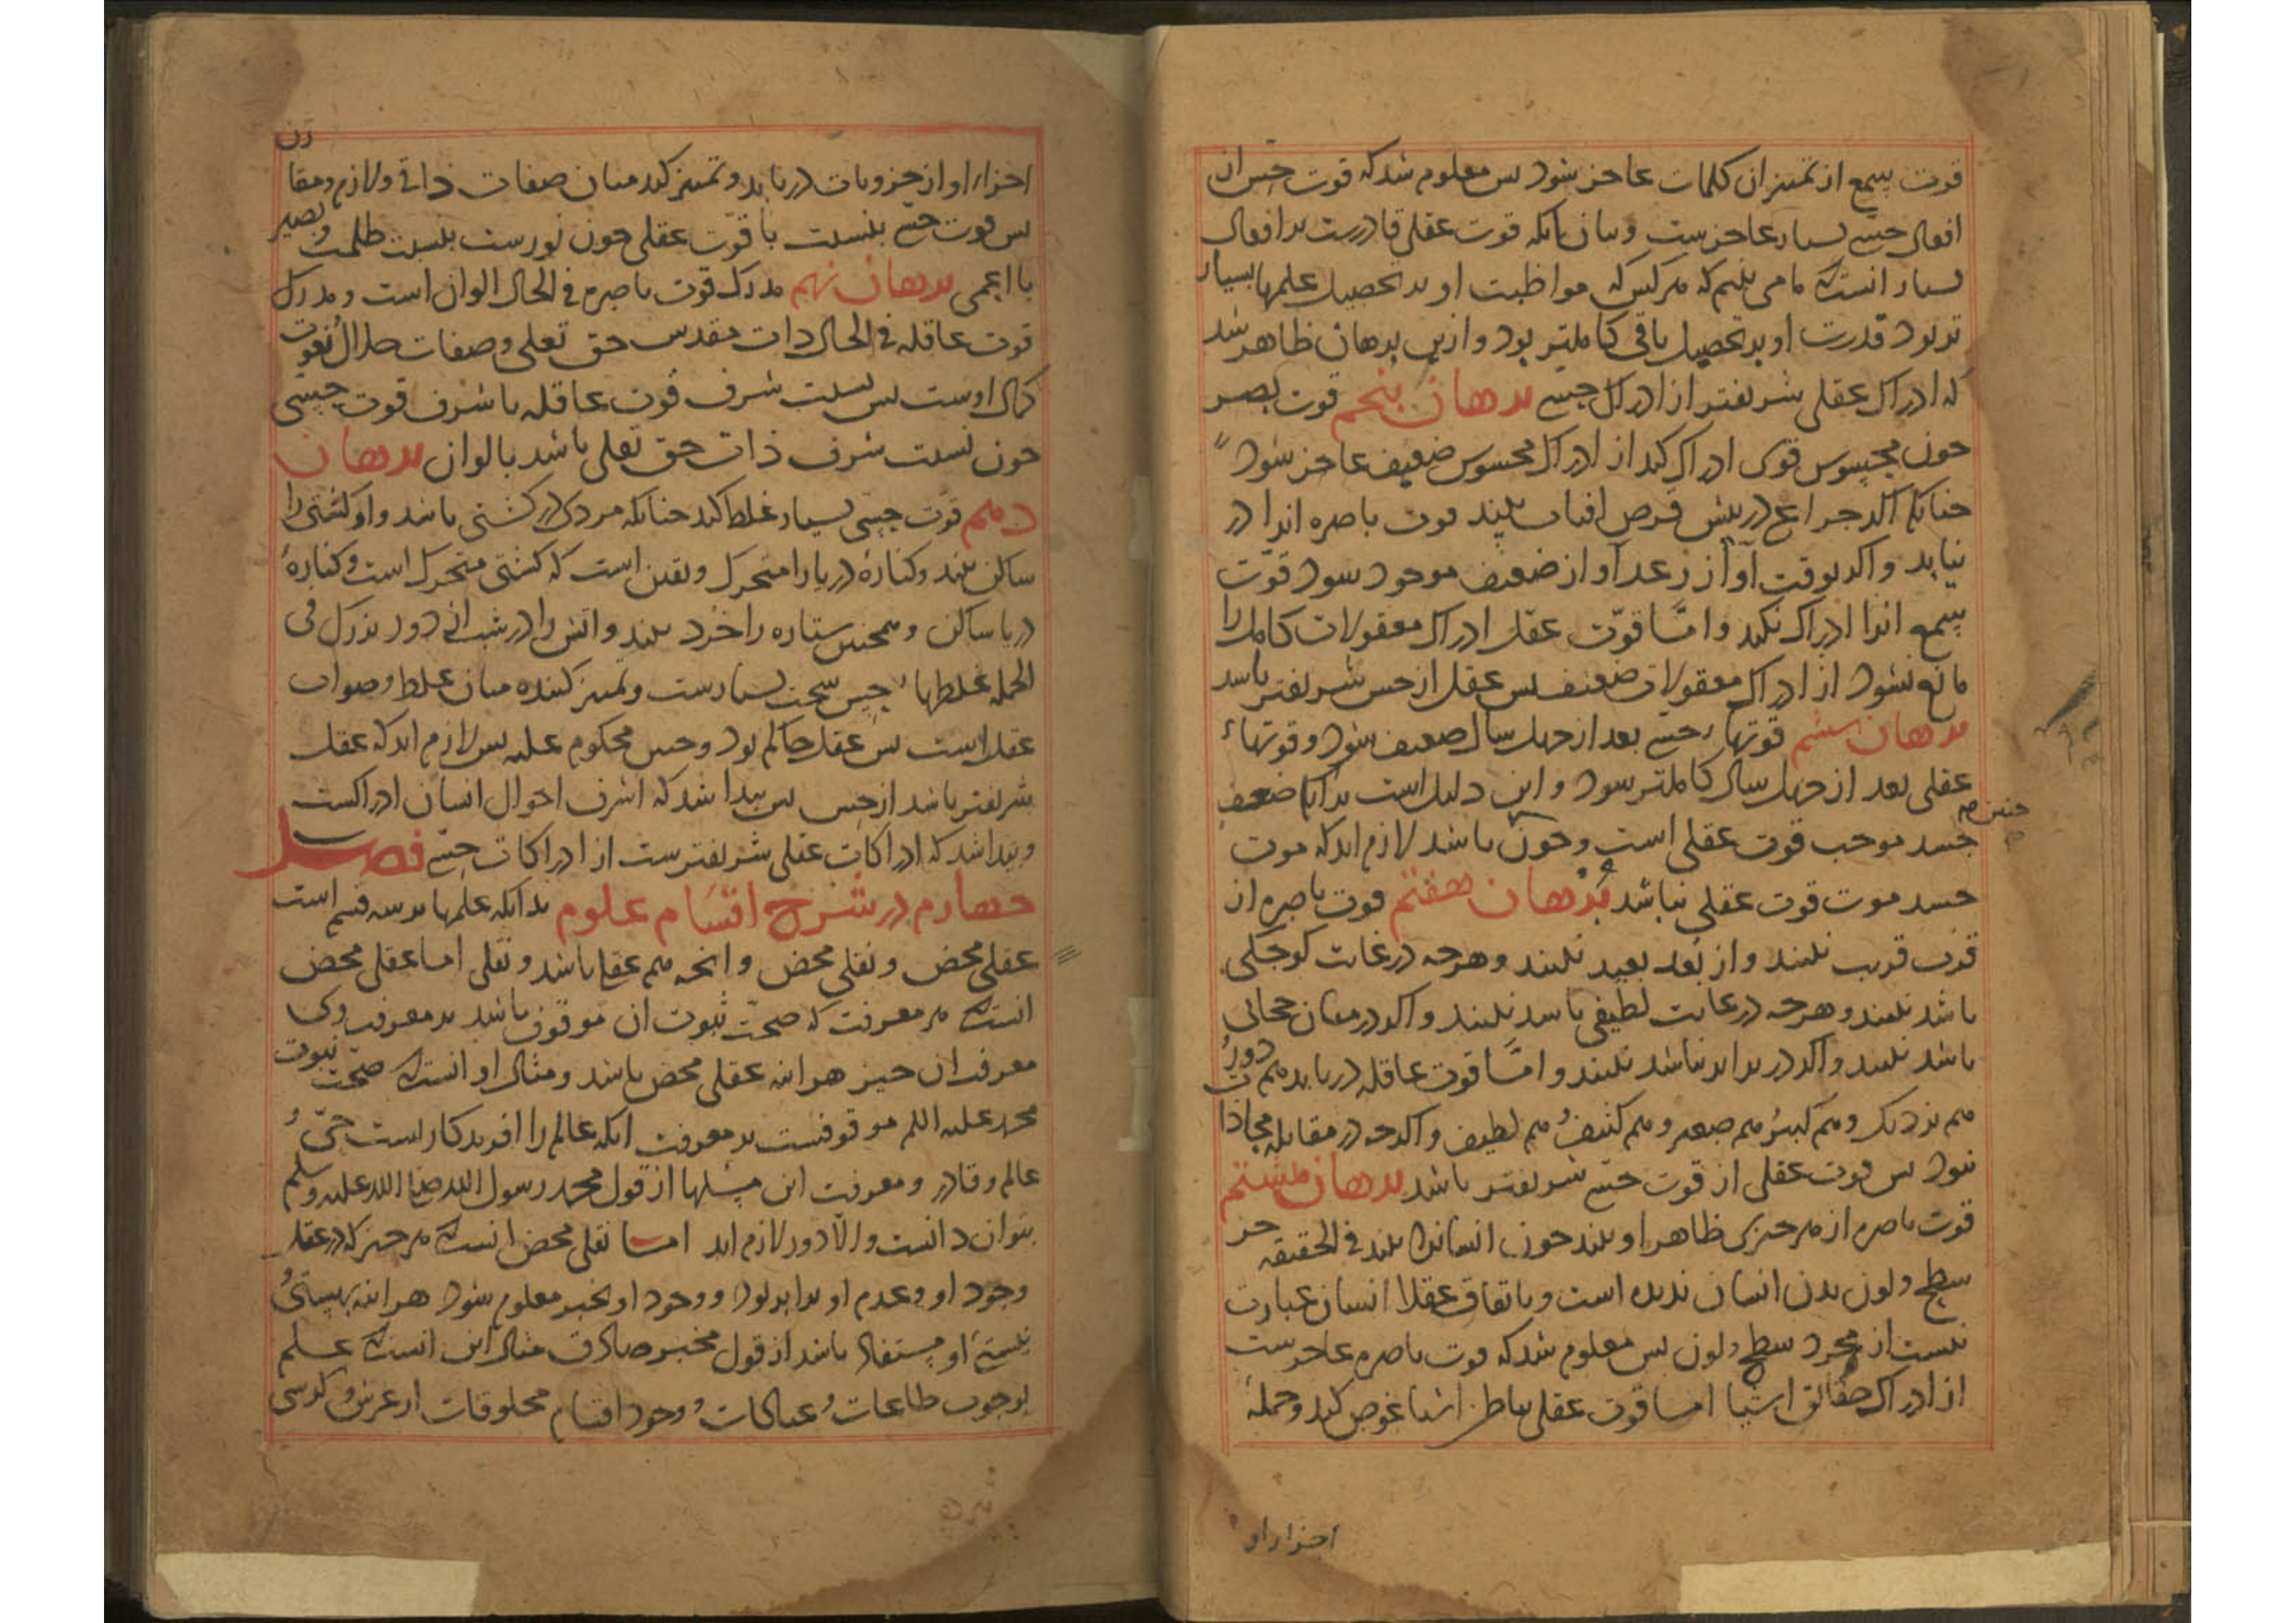 قوت سمع از تمییز ان کلمات عاجز شود بس معلوم شد که قوت حس از
افعال حسی بسیار عاجزست و بیان انکه قوت عقلی قادرست بر افعال
بسیار انست که ما می بینیم که هر کس که مواظبت او بر تحصیل علمها بسیار
تر بود قدرت او بر تحصیل باقی کاملتر بود و ازین برهان ظاهر شد
که ادراک عقلی شریفتر از ادراک حسی برهان پنجم قوت بصر
جون محسوس قوی ادراک کند از ادراک محسوس ضعیف عاجز شود
جنانکه اکر جراغ در بیش قرص افتاب بیند قوت باصره انرا در
نیابد و اکر بوقت آواز رعد آواز ضعیف موجود شود قوّت
سمع انرا ادراک نکند و امّا قوّت عقل ادراک معقولات کامل را
مانع نشود از ادراک معقولات ضعیف بس عقل از حس شریفتر باشد
برهان ششم قوتهاء حسی بعد از جهل سال ضعیف شود و قوتهاء
عقلی بعد از جهل سال کاملتر شود و این دلیل است بر انکه ضعف
جنین
جسد موجب قوت عقلی است و جون باشد لازم اید که موت
جسد موت قوت عقلی نباشد برهان هفتم قوت باصره از
قرب قریب نبیند و از بعد بعید نبیند و هرجه در غایت کوجکی
باشد نبیند و هرجه در غایت لطیفی باشد نبیند و اکر در میان حجابی
باشد نبیند و اکر در برابر نباشد نبیند و امّا قوت عاقله دریابد هم دور
هم نزدیک و هم کبیر هم صغیر و هم کثیف هم لطیف و اکرجه در مقابله محاذات
نبود بس قوت عقلی از قوت حسی شریفتر باشد برهان هشتم
قوت باصره از هر جیزی ظاهر او بیند جون انسانرا بیند فی الحقیقه جز
سطح و لون بدن انسان ندیده است و باتفاق عقلا انسان عبارت
نیست از مجرد سطح و لون بس معلوم شد که قوت باصره عاجزست
از ادراک حقائق اشیا اما قوت عقلی بباطن اشیا غوص کند و جمله
اجزاء او
اجزاء او از جزویات دریابد و تمییز کند میان صفات ذاتی و لازم و مفارق
بس قوت حسی بنسبت با قوّت عقلی جون نورست بنسبت ظلمت و بصیر
با اعمی برهان نهم مدرک قوت باصره فی الحال الوان است و مدرک
قوت عاقله فی الحال ذات مقدس حق تعلی و صفات جلال نعوت
کمال اوست بس نسبت شرف قوت عاقله با شرف قوت حسی
جون نسبت شرف ذات حق تعلی باشد بالوان برهان
دهم قوت حسی بسیار غلط کند جنانکه مردی در کشتی باشد و او کشتی را
ساکن بیند و کنارهٔ دریا را متحرک و یقین است که کشتی متحرک است و کنارهٔ
دریا ساکن و همجنین ستاره را خرد بیند و اتش را در شب از دور بزرک فی
الجمله غلطهاء حس سخت بسیارست و تمییز کننده میان غلط و صواب
عقل است بس عقل حاکم بود و حس محکوم علیه بس لازم اید که عقل
شریفتر باشد از حس بس بیدا شد که اشرف احوال انسان ادراکست
و بیدا شد که ادراکات عقلی شریفترست از ادراکات حسی فصل
جهارم در شرح اقسام علوم بدانکه علمها بر سه قسم است
عقلی محض و نقلی محض و انجه هم عقلی باشد و نقلی اما عقلی محض
انست که هر معرفت که صحت ثبوت ان موقوف باشد بر معرفت وی
معرفت ان جیز هراینه عقلی محض باشد و مثال او انست که صحّت نبوت
محمد علیه اللم موقوفست بر معرفت انکه عالم را افریدکاریست حیّ
عالم و قادر و معرفت این مسئلها از قول محمد رسول الله صلی الله علیه و سلم
بتوان دانست و الّا دور لازم اید اما نقلی محض انست که هر جیز که در عقل
وجود او و عدم او برابر بود و وجود او بخبر معلوم شود هراینه هستی و
نیستی او مستفاد باشد از قول مخبر صادق مثال این انست که علم
بوجوب طاعات و عبادات و وجود اقسام مخلوقات از عرش و کرسی